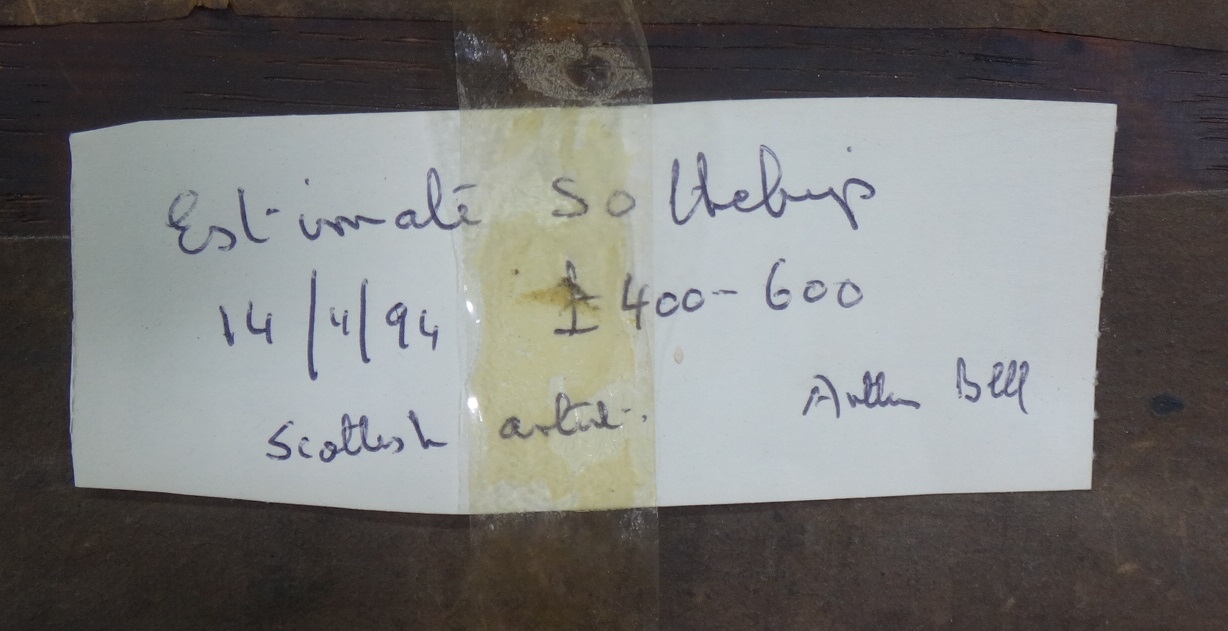 Estimate Sothebys
14/4/94 £400-600
Scottish artist.
Arthur Bell